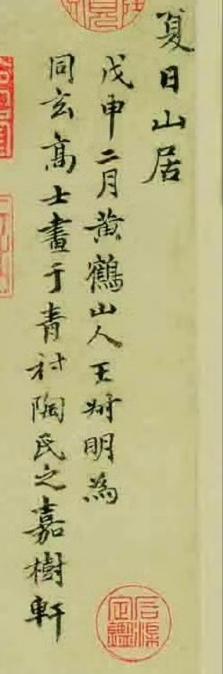 夏日山居
戊申二月黄鶴山人王叔明為
同玄高士畫于青村陶氏之嘉樹軒